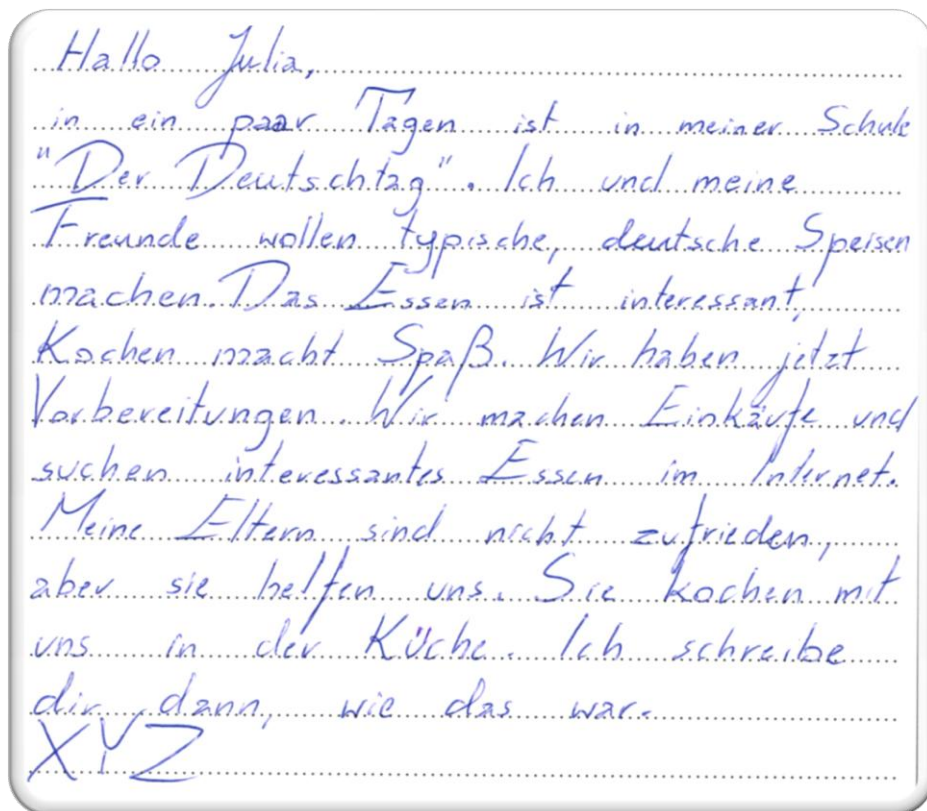 Hallo Julia,
in ein paar Tagen ist in meiner Schule
"Der Deutschtag". Ich und meine
Freunde wollen typische, deutsche Speisen
machen. Das Essen ist interessant,
Kochen macht Spaß. Wir haben jetzt
Vorbereitungen. Wir machen Einkäufe und
suchen interessantes Essen im Internet.
Meine Eltern sind nicht zufrieden,
aber sie helfen uns. Sie kochen mit
uns in der Küche. Ich schreibe
dir dann, wie das war.
XYZ